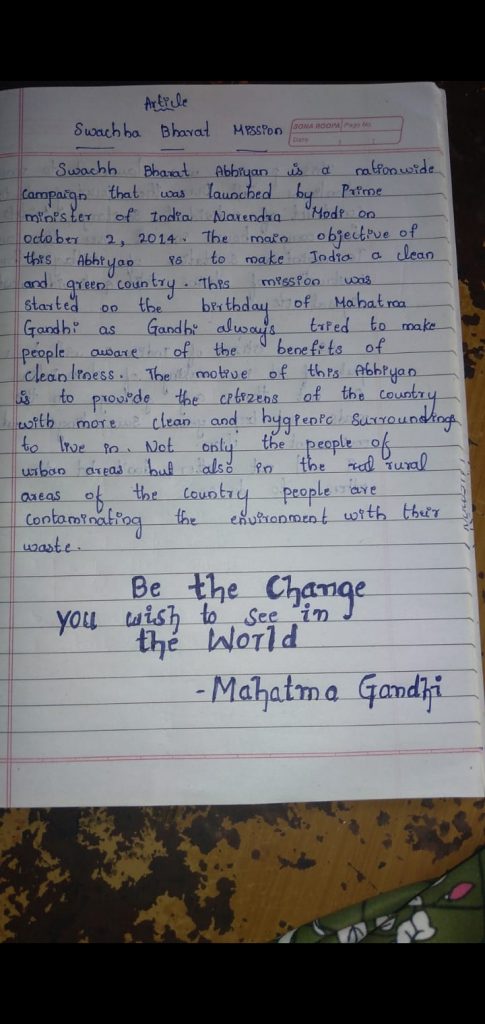 Article
Swachha Bharat Mission
SONA ROOPA Page No.
Date
Swachh Bharat Abhiyan is a nationwide
campaign that was launched by Prime
minister of India Narendra Modi on
october 2, 2014. The main objective of
this Abhiyao is to make India a clean
and green country. This mission was
started on the birthday of Mahatma
Gandhi as Gandhi always tried to make
people aware of the benefits of
cleanliness. The motive of this Abhiyan
is to provide the citizens of the country
with more clean and hygienic surroundings
to live in. Not only the people of
urban areas but also in the rural
areas of the country people are
contaminating the environment with their
waste.
Be the Change
you wish to see in
the World
- Mahatma Gandhi